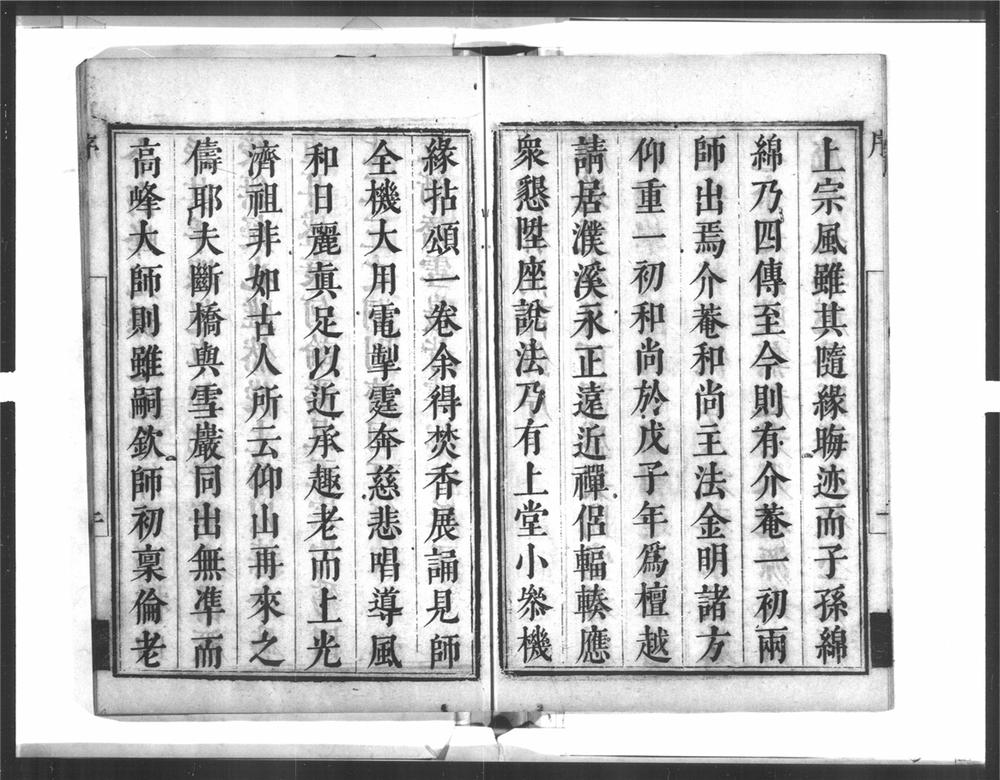 上宗風雖其隨緣晦迹而子孫綿
綿乃四傳至今則有介菴一初兩
師出焉介菴和尚主法金明諸方
仰重一初和尚於戊子年爲檀越
請居濮溪永正遠近禪侶輻輳應
衆懇陞座說法乃有上堂小叅機
緣拈頌一卷余得焚香展誦見師
全機大用電掣霆奔慈悲唱導風
和日麗眞足以近承趣老而上光
濟祖非如古人所云仰山再來之
儔耶夫斷橋與雪巖同出無準而
高峰大師則雖嗣欽師初稟倫老